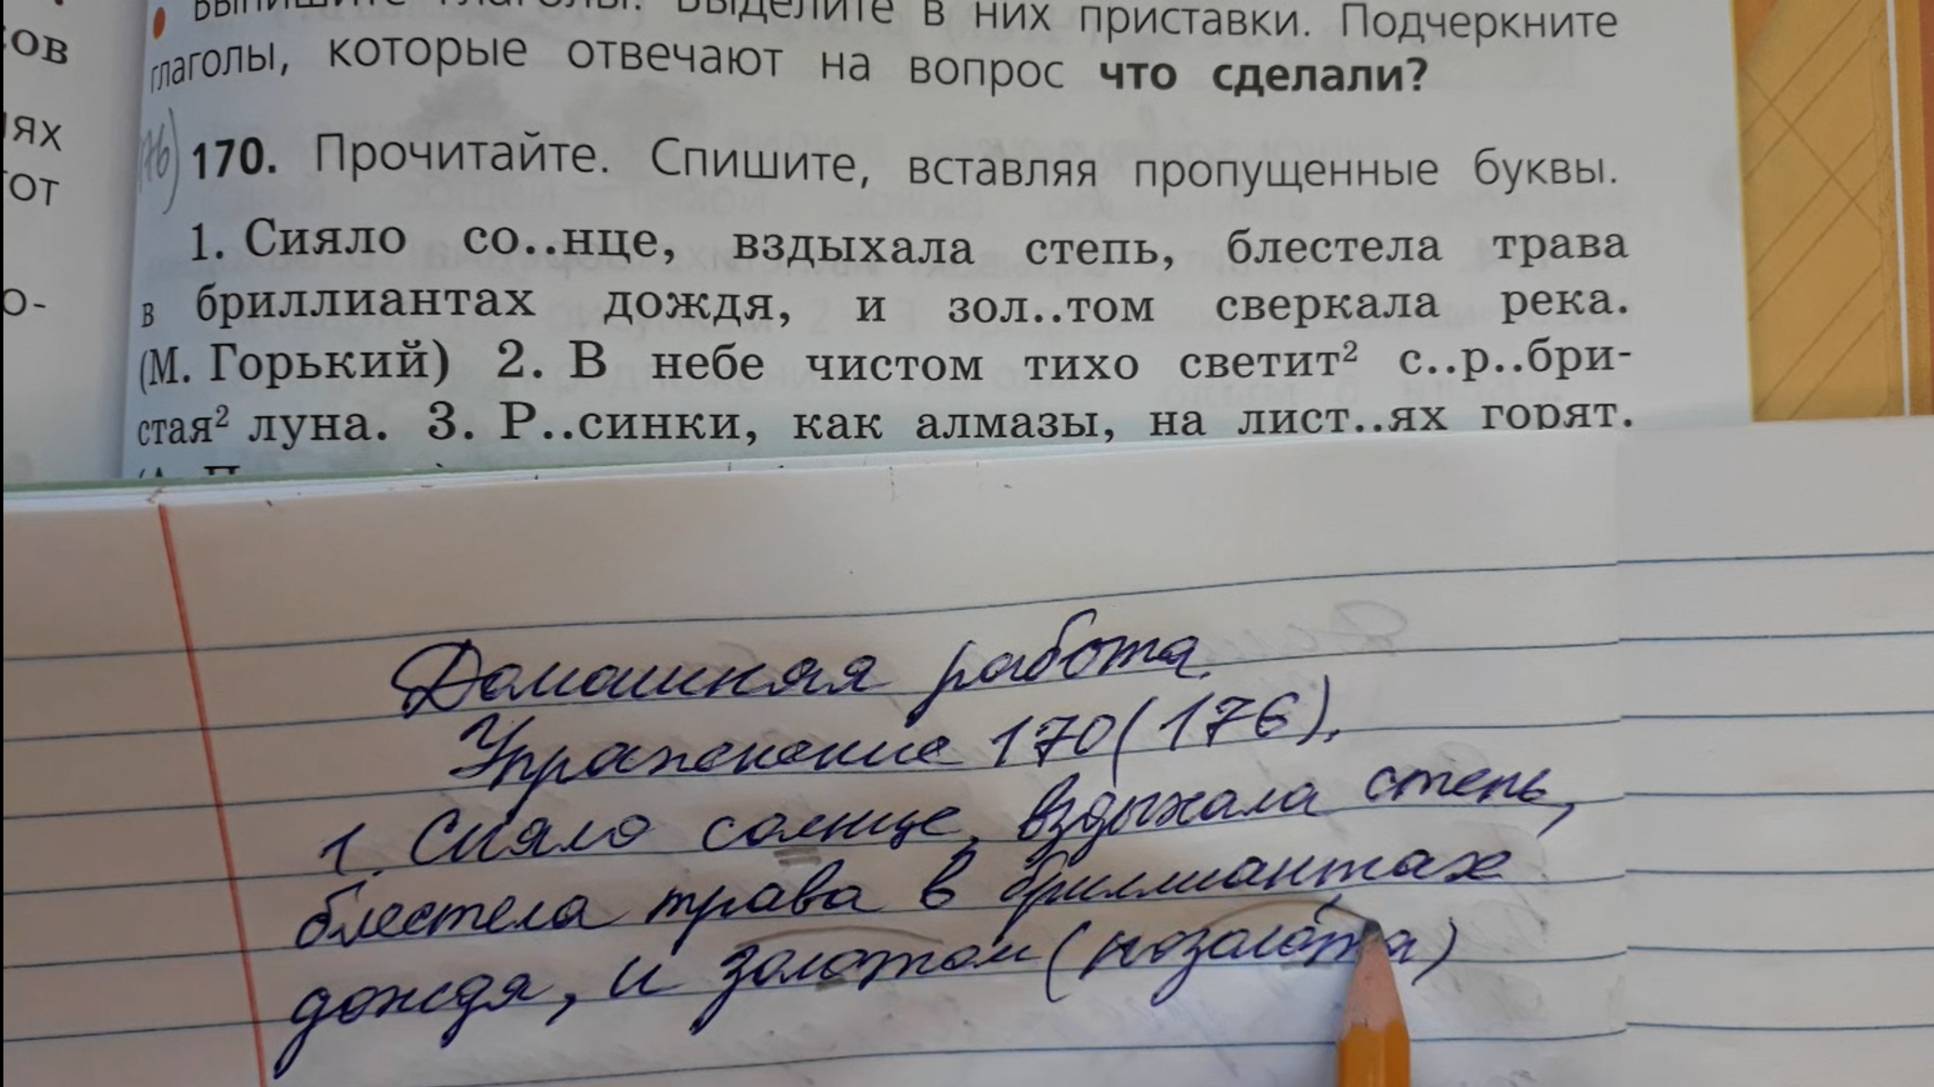 ов
ях
от
о-
выпишите глаголы. Выделите в них приставки. Подчеркните
глаголы, которые отвечают на вопрос что сделали?
176) 170. Прочитайте. Спишите, вставляя пропущенные буквы.
1. Сияло со..нце, вздыхала степь, блестела трава
в бриллиантах дождя, и зол..том сверкала река.
(М. Горький) 2. В небе чистом тихо светит² с..р..бри-
стая² луна. 3. Р..синки, как алмазы, на лист..ях горят.
Домашняя работа.
Упражнение 170(176).
1. Сияло солнце, вздыхала степь,
блестела трава в бриллиантах
дождя, и золотом (позолота)